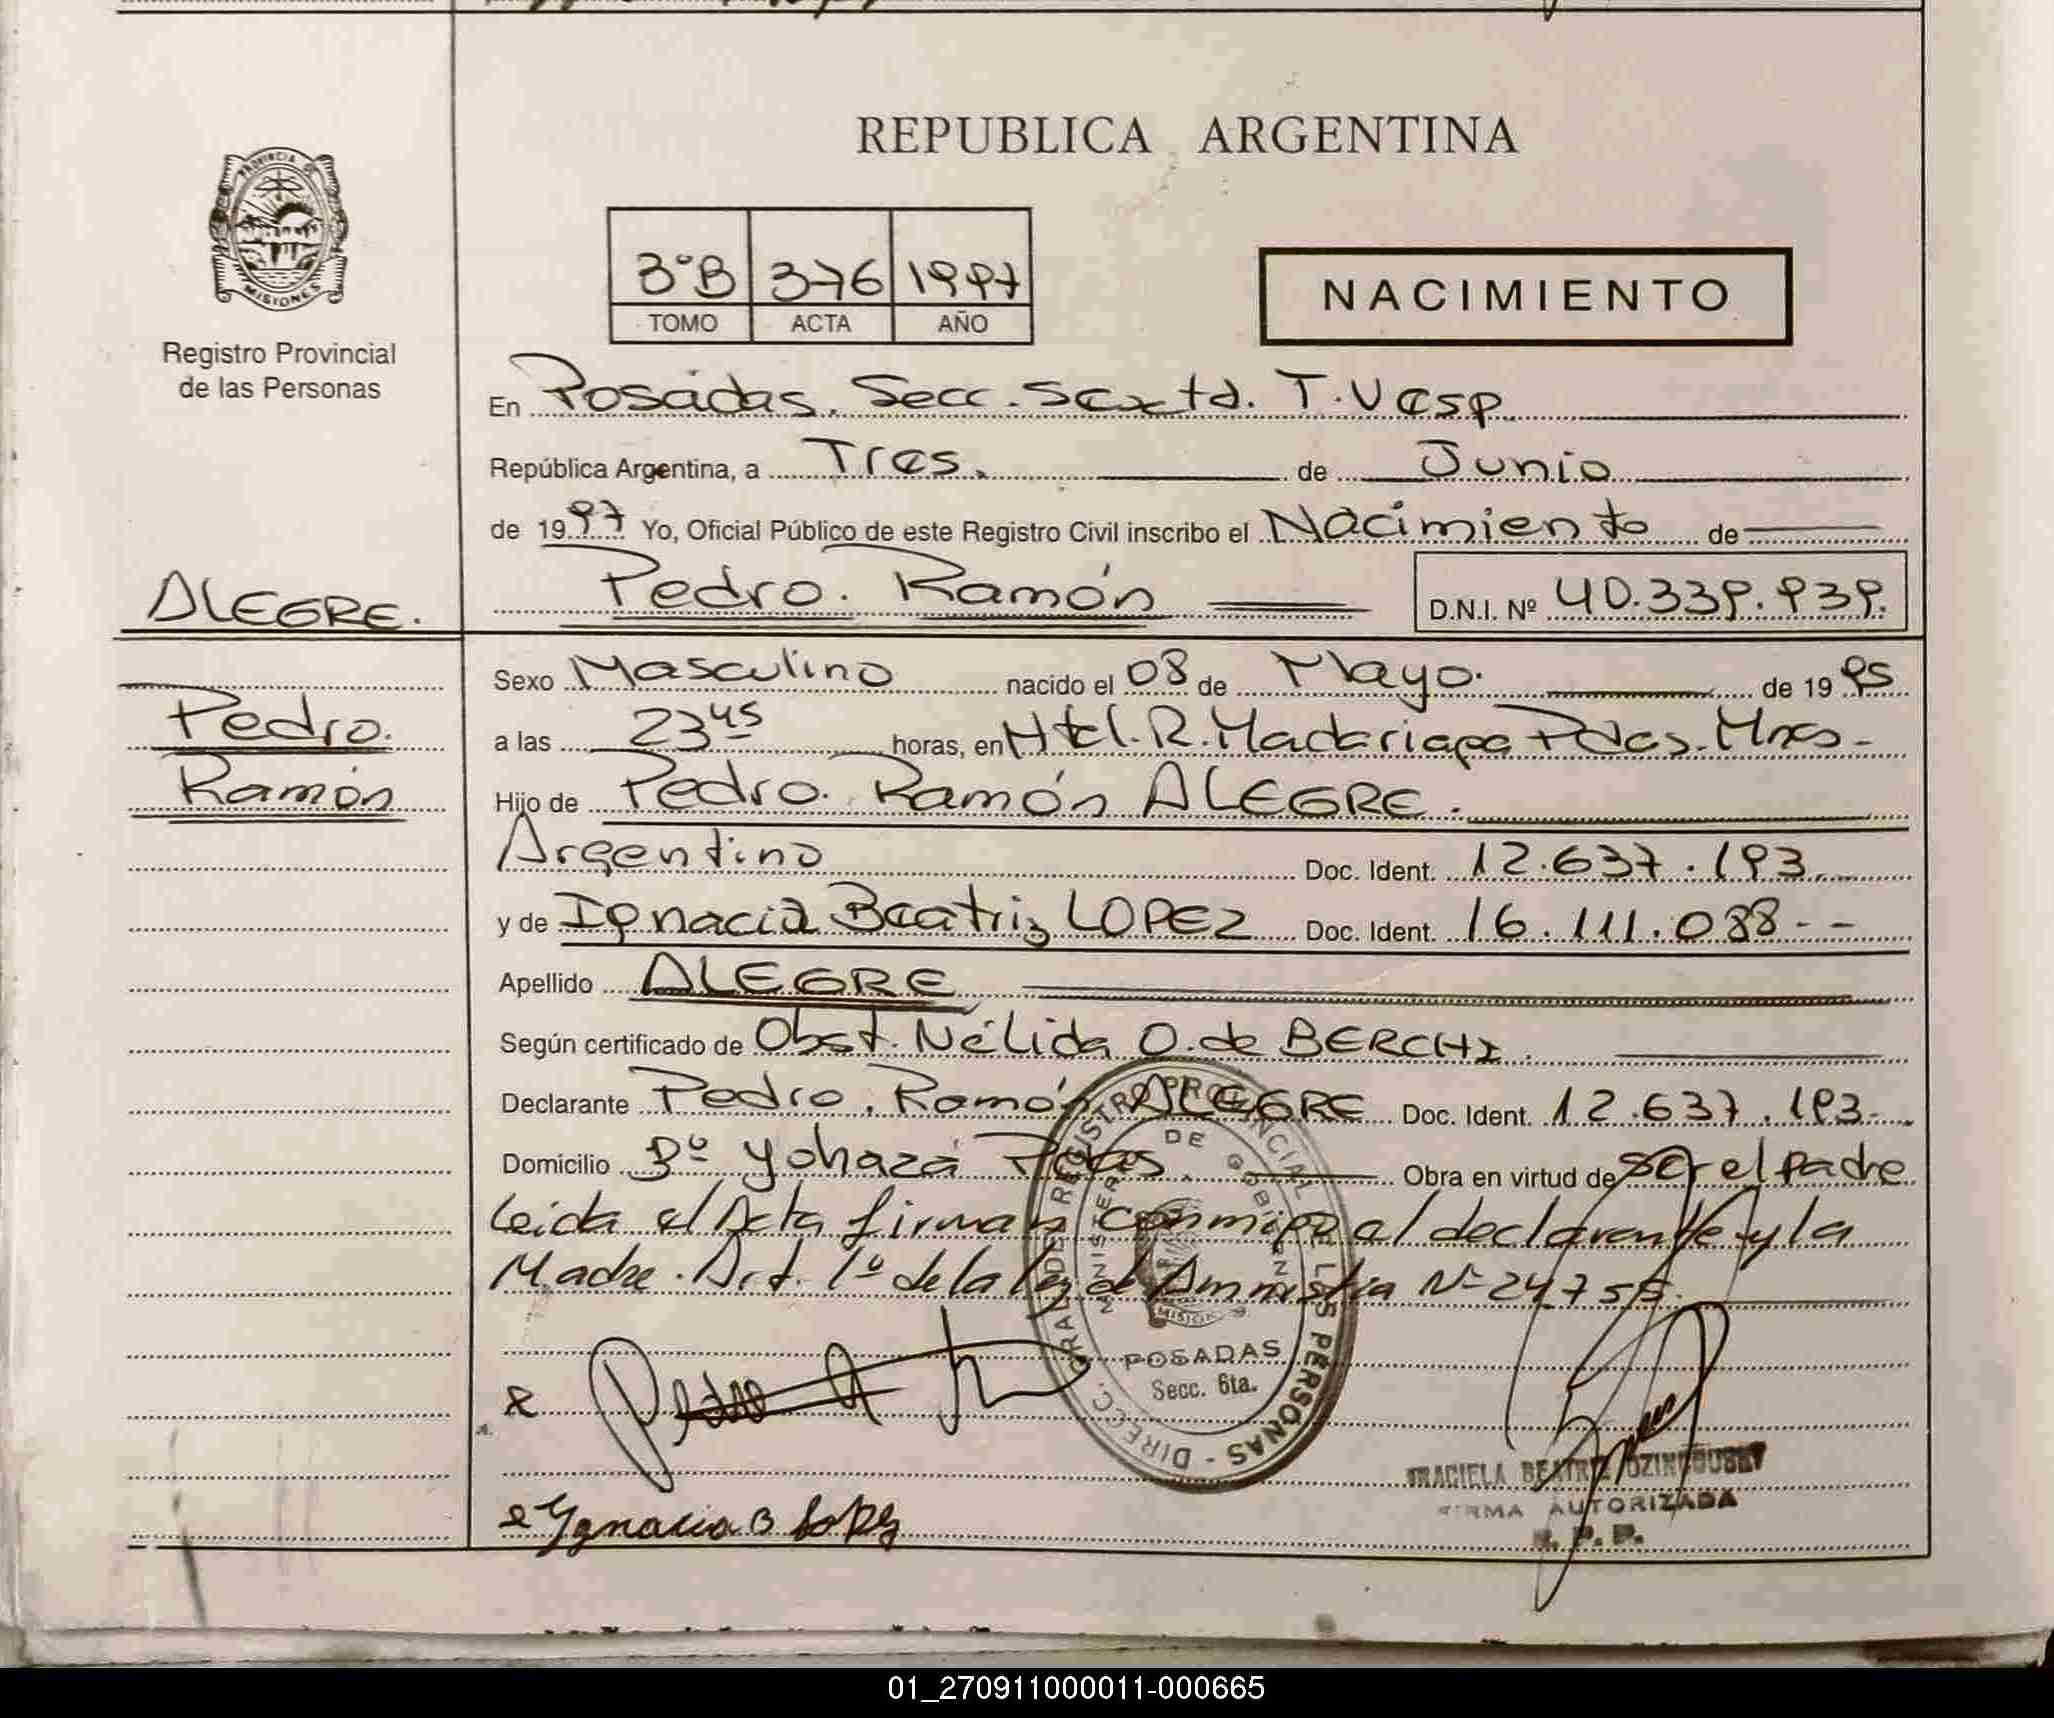 REPUBLICA ARGENTINA
PROVINCIA DE
MISIONES
Registro Provincial
de las Personas
3°B 376 1997
TOMO ACTA AÑO
NACIMIENTO
En Posadas. Secc. Sexta. T. Vesp.
República Argentina, a Tres. de Junio
de 1997 Yo, Oficial Público de este Registro Civil inscribo el Nacimiento de
ALEGRE. Pedro. Ramón D.N.I. Nº 40.339.939.
Sexo Masculino nacido el 08 de Mayo. de 1995
Pedro. a las 23 45 horas, en Htal. R. Madariaga Pdas. Mnes-
Ramón Hijo de Pedro. Ramón ALEGRE.
Argentino Doc. Ident. 12.637.193
y de Ignacia Beatriz LOPEZ Doc. Ident. 16.111.088--
Apellido ALEGRE
Según certificado de Obst. Nélida O. de BERCHI.
Declarante Pedro. Ramón ALEGRE Doc. Ident. 12.637.193-
Domicilio Bº Yohazá Pdas. Obra en virtud de ser el padre
Leida el Acta firman conmigo el declarante y la
Madre. Art. 1º de la ley de Amnistia Nº 24755.
DIRECC. GRAL. DE REGISTRO PROVINCIAL DE LAS PERSONAS -
MINISTERIO DE GOBIERNO
MISIONES
POSADAS
Secc. 6ta.
Pedro
GRACIELA BEATRIZ
FIRMA AUTORIZADA
R. P. P.
Ygnacia B Lopez
01_270911000011-000665